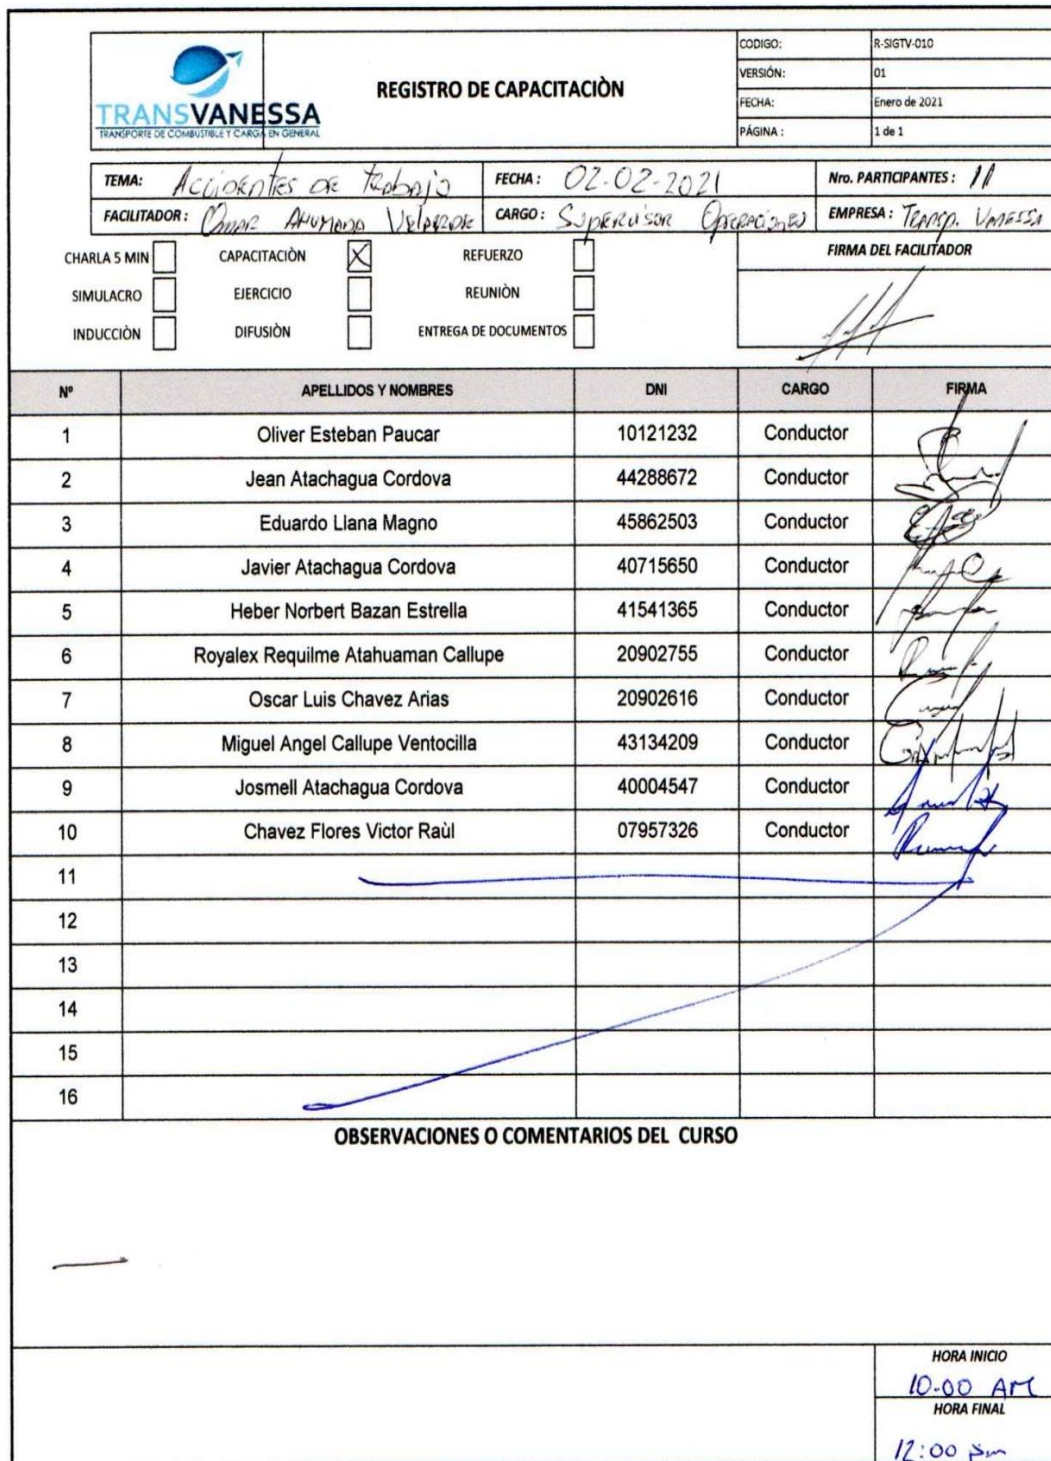 TRANSVANESSA
TRANSPORTE DE COMBUSTIBLE Y CARGA EN GENERAL
REGISTRO DE CAPACITACIÒN
CODIGO: R-SIGTV-010
VERSIÓN: 01
FECHA: Enero de 2021
PÁGINA : 1 de 1
TEMA: Accidentes de trabajo FECHA : 02-02-2021 Nro. PARTICIPANTES : 11
FACILITADOR : Omar Ahumada Velarde CARGO : Supervisor Operaciones EMPRESA : Transp. Vanessa
CHARLA 5 MIN CAPACITACIÒN X REFUERZO FIRMA DEL FACILITADOR
SIMULACRO EJERCICIO REUNIÒN
INDUCCIÒN DIFUSIÒN ENTREGA DE DOCUMENTOS
Nº APELLIDOS Y NOMBRES DNI CARGO FIRMA
1 Oliver Esteban Paucar 10121232 Conductor
2 Jean Atachagua Cordova 44288672 Conductor
3 Eduardo Llana Magno 45862503 Conductor
4 Javier Atachagua Cordova 40715650 Conductor
5 Heber Norbert Bazan Estrella 41541365 Conductor
6 Royalex Requilme Atahuaman Callupe 20902755 Conductor
7 Oscar Luis Chavez Arias 20902616 Conductor
8 Miguel Angel Callupe Ventocilla 43134209 Conductor
9 Josmell Atachagua Cordova 40004547 Conductor
10 Chavez Flores Victor Raùl 07957326 Conductor
11
12
13
14
15
16
OBSERVACIONES O COMENTARIOS DEL CURSO
HORA INICIO
10-00 AM
HORA FINAL
12:00 pm